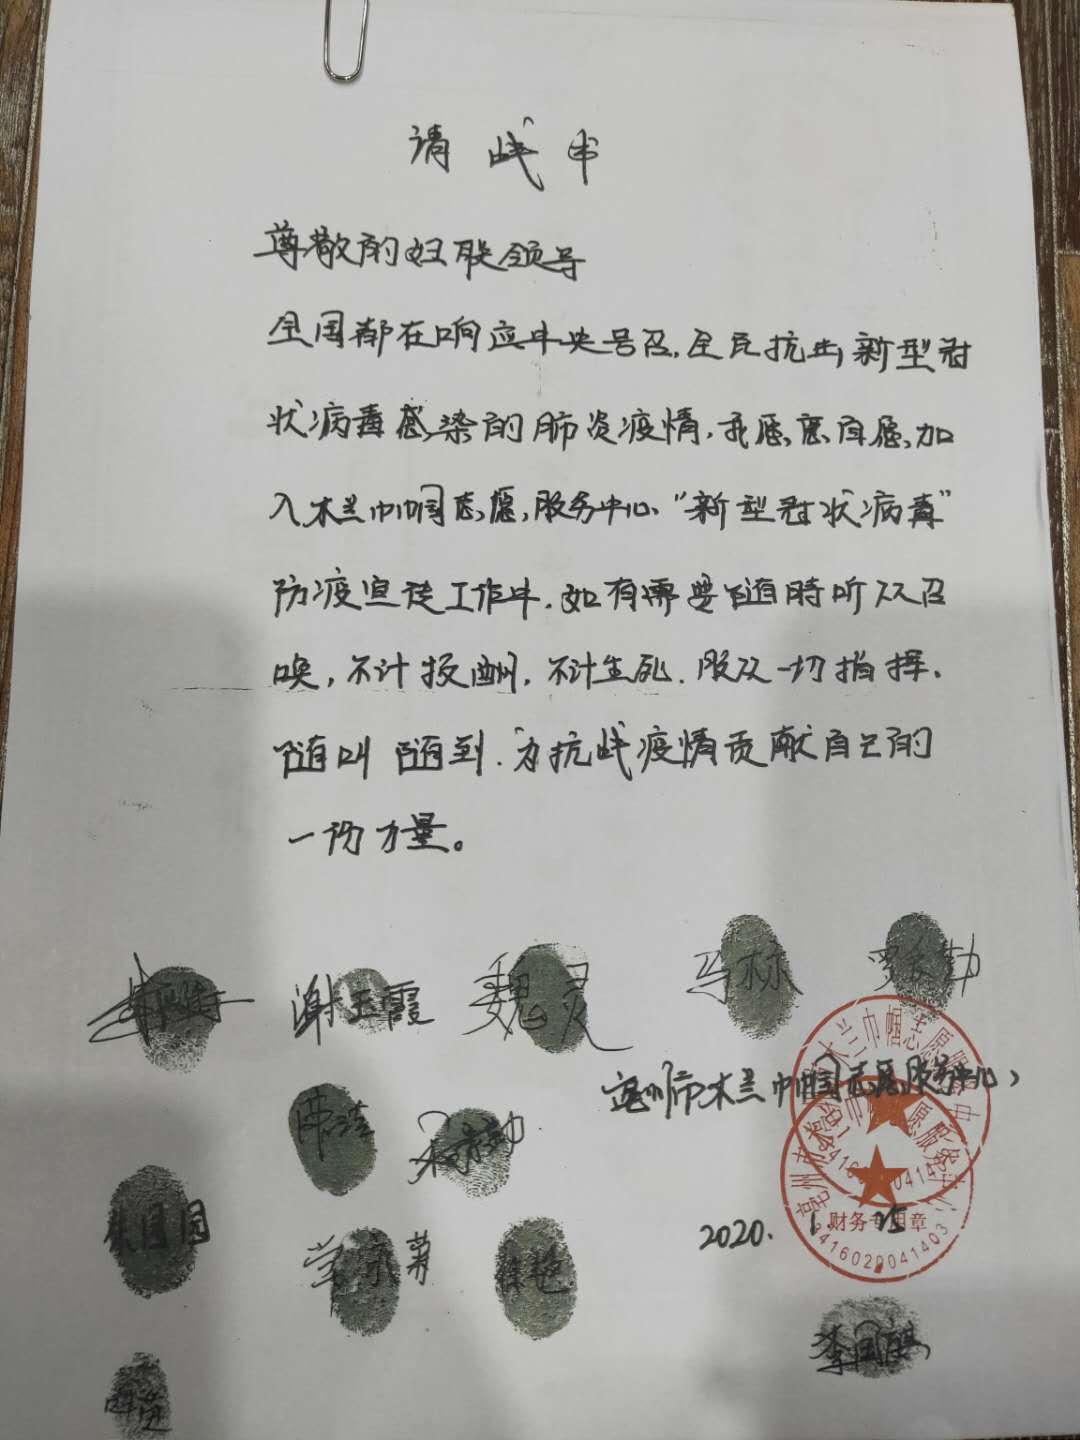 请战书
尊敬的妇联领导
全国都在响应中央号召,全民抗击新型冠
状病毒感染的肺炎疫情,我愿意自愿加
入木兰巾帼志愿服务中心"新型冠状病毒"
防疫宣传工作中,如有需要随時听从召
唤,不计报酬,不计生死.服从一切指挥.
随叫随到.为抗战疫情贡献自己的
一份力量。
谢玉霞 魏灵 马林
亳州市木兰巾帼志愿服务中心
木兰巾帼志愿服务中
2020.1.25
财务专用章
3416020041403
徐艳
李国麒